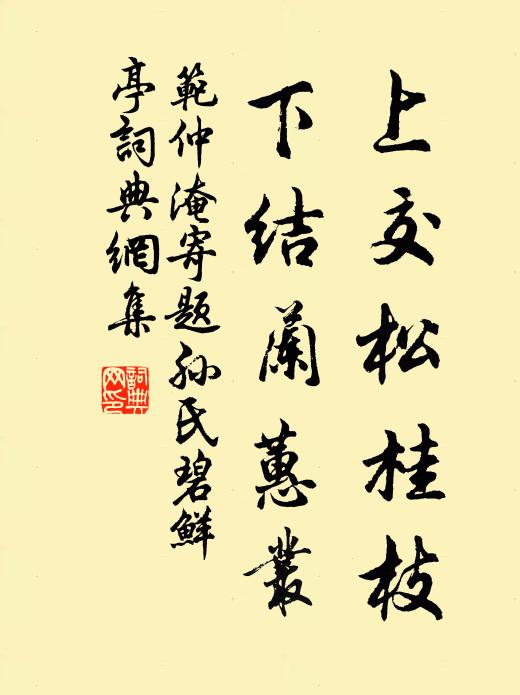 上交松桂枝
下结蘭蕙叢
範仲淹寄題孙氏碧鮮
亭詞典網集
詞典
网印